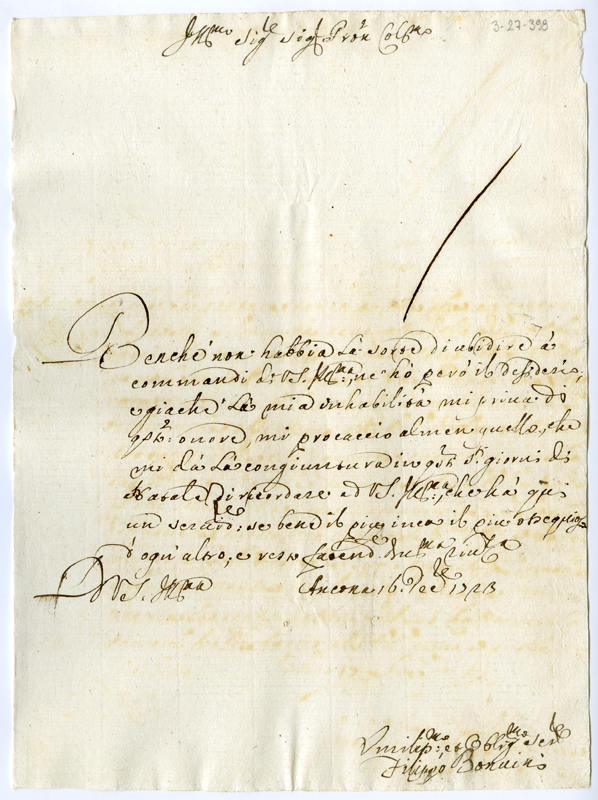 3-27-398
Ill.mo Sig.re Sig.r Pron Col.mo
Benche' non habbia la sorte di ubidire à
commandi di VS. Ill.ma; ne hò però il desiderio,
e giache' la mia inhabilità mi priva di
qst: onore, mi procaccio almen quello, che
mi dà la congiuntura in qsti S.ti giorni di
Natale di ricordare ad VS. Ill.ma, che hà qui
un servid.re; se bene il più il più ossequioso
d'ogn'altro; e resto facend.le
D VS. Ill.ma Ancona 16. Xbre 1723
Vmiliss.mo: et Obblig.mo Ser.
Filippo Bonvini